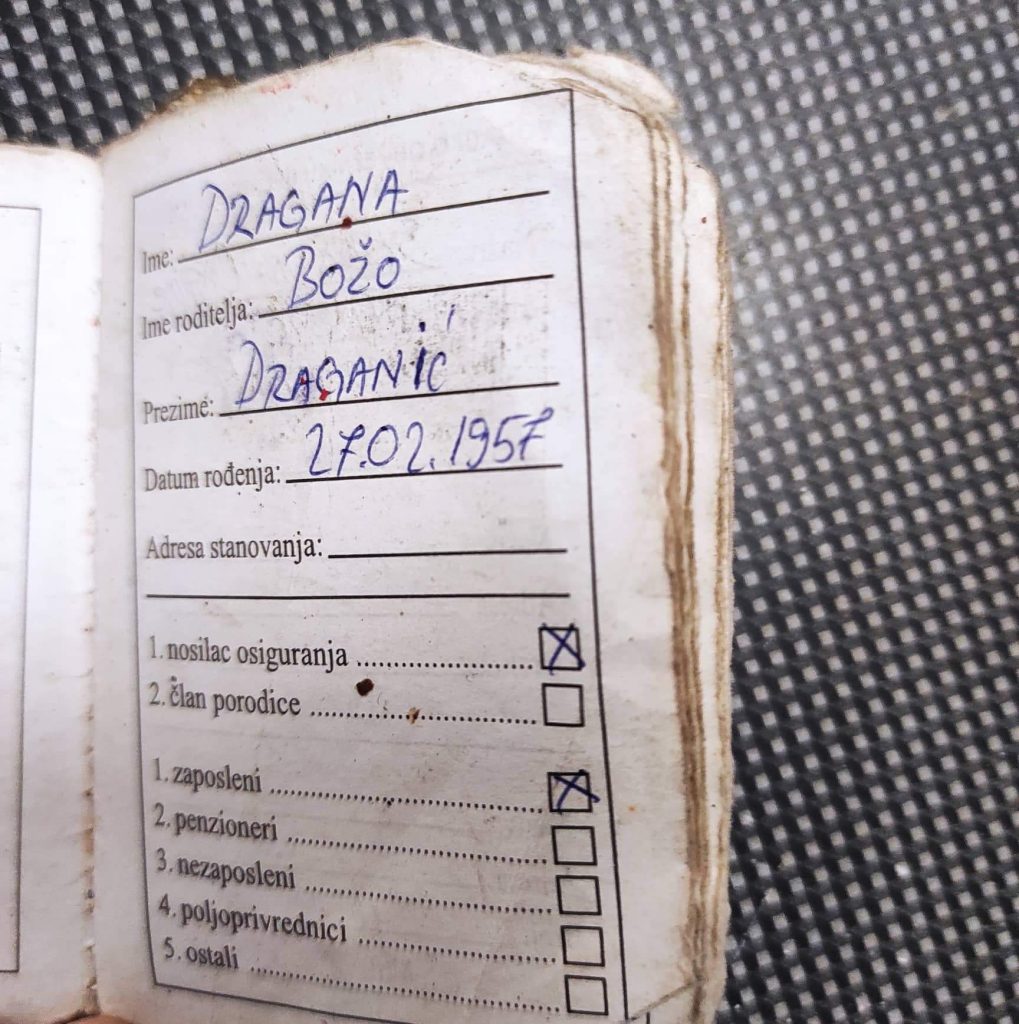 Ime: DRAGANA
Ime roditelja: BOŽO
Prezime: DRAGANIĆ
Datum rođenja: 27.02.1957
Adresa stanovanja:
1. nosilac osiguranja ........................... X
2. član porodice ...................................
1. zaposleni ......................................... X
2. penzioneri .......................................
3. nezaposleni .....................................
4. poljoprivrednici ..............................
5. ostali ...............................................